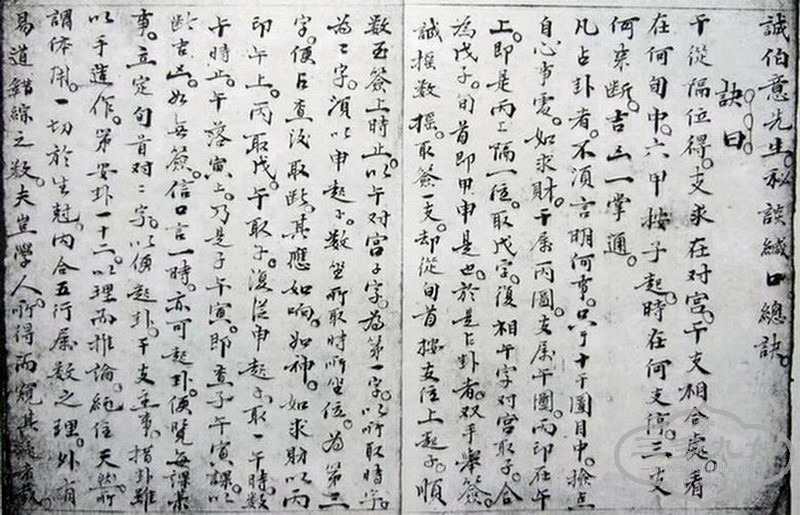 誠伯意先生。秘談緘口總訣。
訣曰。
干從隔位得。支求在对宫。干支相合處。看
在何旬中。六甲按子起。時在何支停。三支
何束断。吉凶一掌通。
凡占卦者。不須言明何事。只于十干圖目中。撿点
自心事處。如求財。干属丙圖。支属午圖。丙印在午
上。即是丙上隔一位。取戊字。復相午字对宫取子。合
為戊子。旬首即甲申是也。於是占卦者。双手舉簽。
誠搖数搖。取簽一支。却從旬首按支位上起子。順
数至簽上時止。以午对宫子字。為第一字。以所取時為
為二字。須以申起子。数至所取時所坐位。為第三
字。便占查没取断。其應如响。如神。如求財以丙
印午上。丙取戊。午取子。復從申起子。取一午時。数
午時止。午落寅上。乃是子午寅。即查子午寅課。以
断吉凶。如無簽。信口言一時。亦可起卦。便覽每課
事。立定旬首对二字。以便起卦。干支主事。指卦雖
以手造作。第安卦一十二。以理而推論。純任天然所
謂体用。一切於生尅。内合五行属数之理。外有
易道錯綜之数。夫豈学人所得而窺其